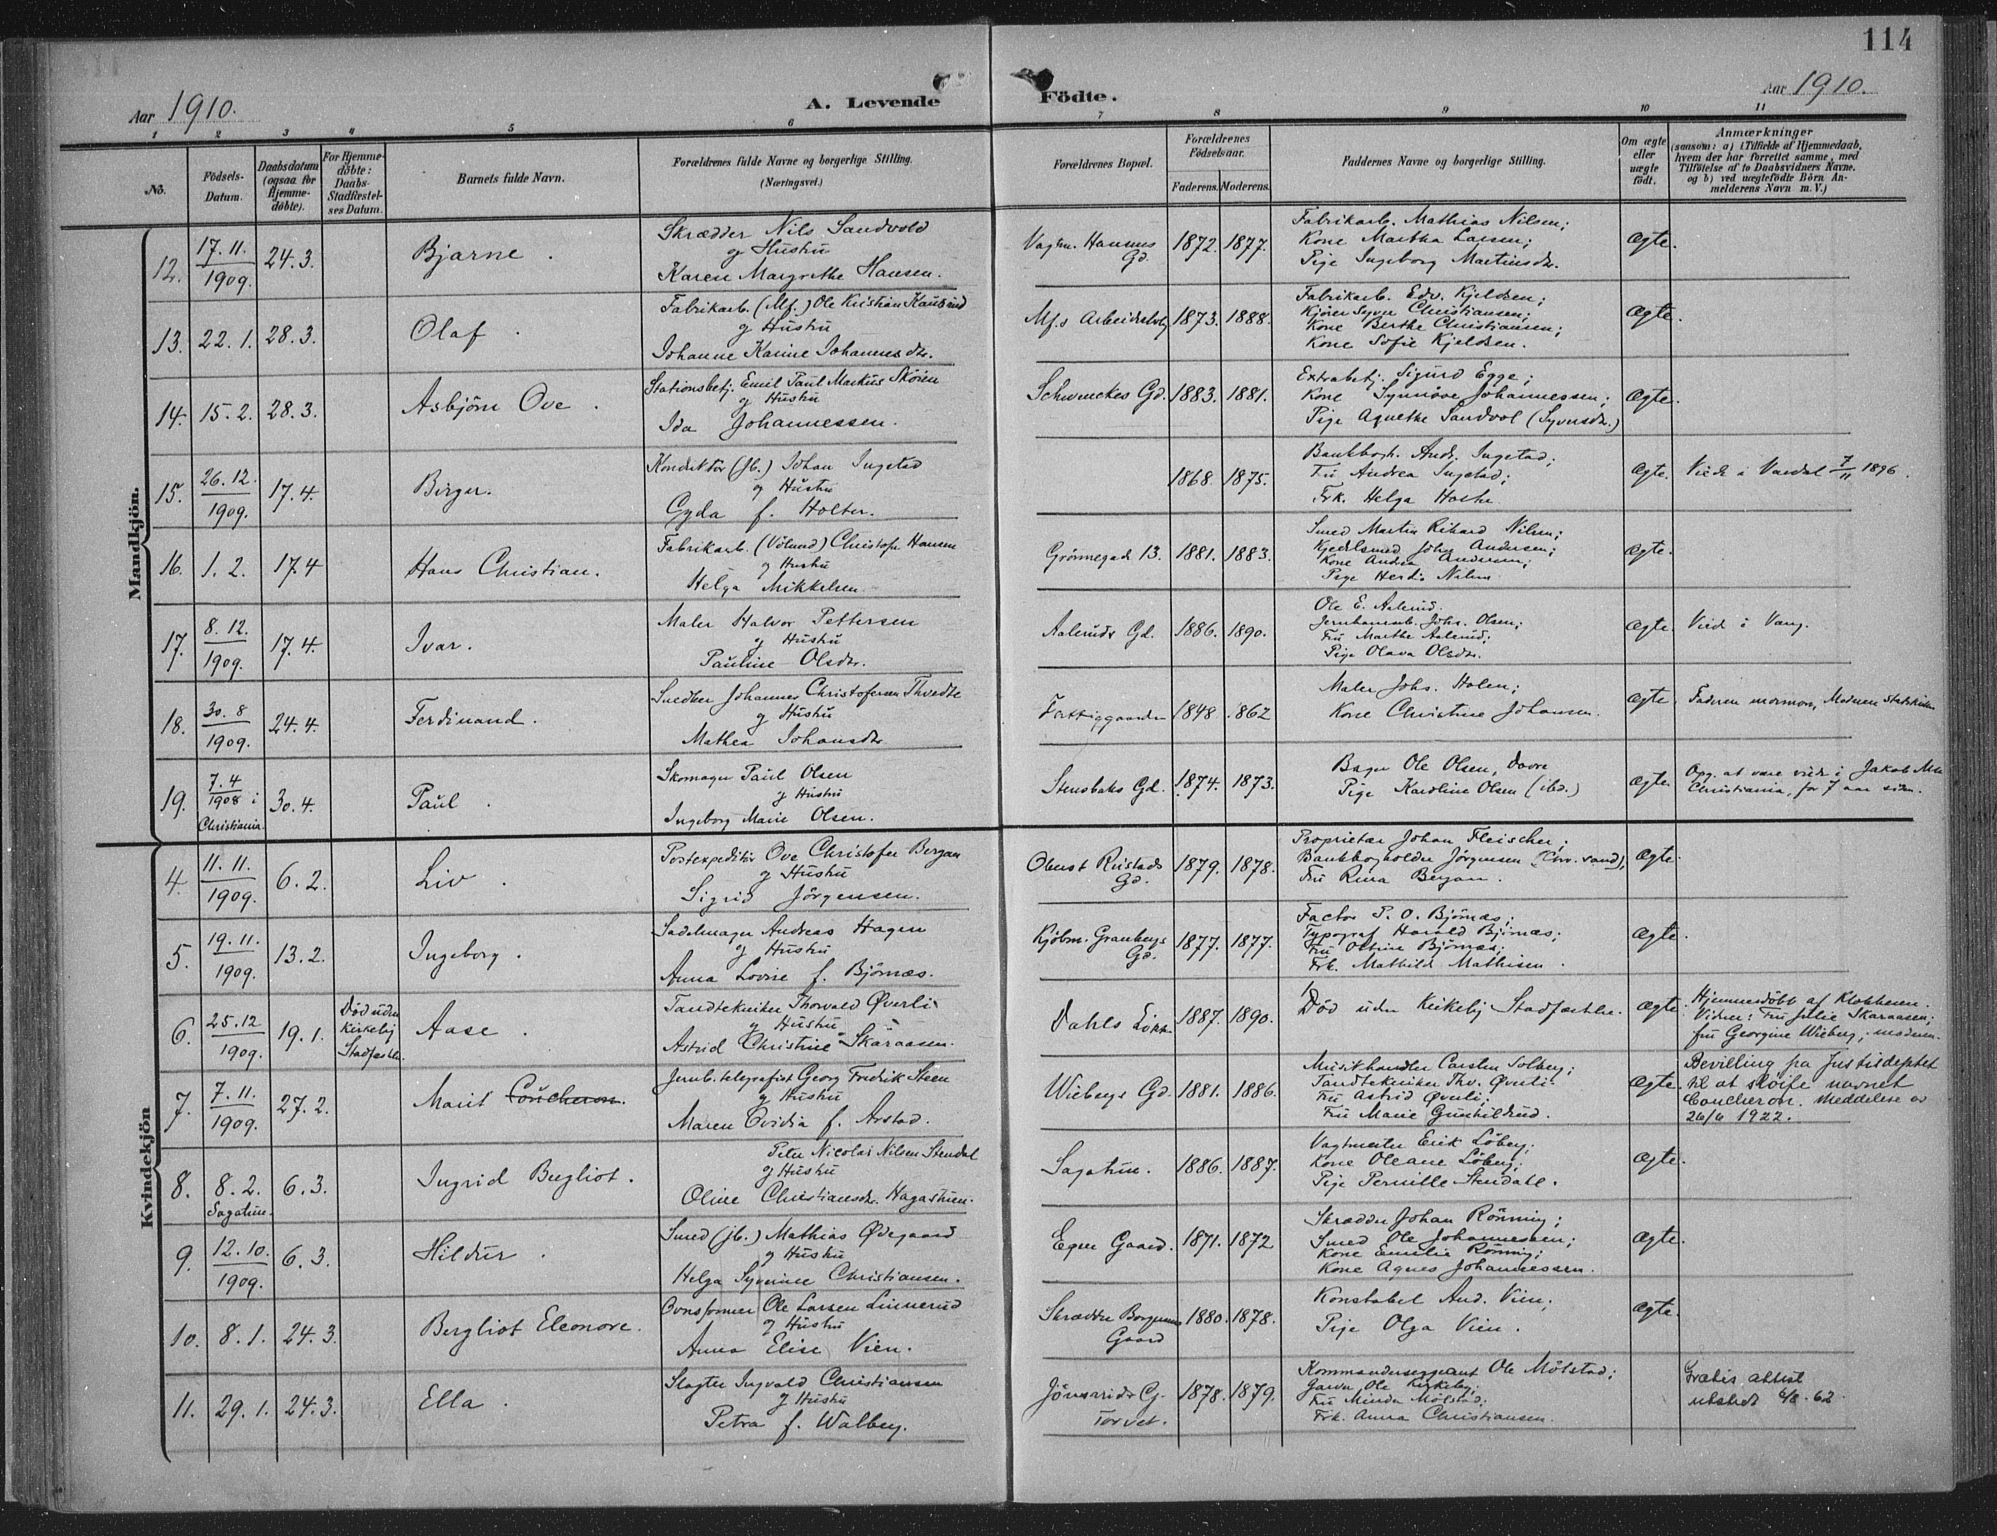 114
Aar 1910.
A. Levende Födte.
Aar 1910.
1 2 3 4 5 6 7 8 9 10 11
No.
Födsels-Datum.
Daabsdatum (ogsaa for Hjemme-döbte).
For Hjemme-döbte: Daabs-Stadfæstel-ses Datum.
Barnets fulde Navn.
Forældrenes fulde Navne og borgerlige Stilling.
(Næringsvei.)
Forældrenes Bopæl.
Forældrenes Födselsaar.
Faderens. Moderens.
Faddernes Navne og borgerlige Stilling.
Om ægte eller uægte födt.
Anmærkninger
(saasom: a) i Tilfælde af Hjemmedaab, hvem der har forrettet samme, med Tilföielse af to Daabsvidners Navne. og b) ved uægtefödte Börn An-melderens Navn m. V.)
Mandkjön.
12. 17.11. 1909. 24.3. Bjarne.
Skrædder Nils Sandvold
og Hustru
Karen Margrethe Hansen.
Gd. 1872. 1877.
Fabrikarb. Mathias Nilsen;
Kone Martha Larsen;
Pige Ingeborg Martinsdr.
Ægte.
13. 22.1. 28.3. Olaf.
Fabrikarb. (Mf.) Ole Kristian
og Hustru
Johanne Karine Johannesdr.
Mf.s 1873. 1888.
Fabrikarb. Edv. Kjeldsen;
Kjörer Syver Christiansen;
Kone Berthe Christiansen;
Kone Sofie Kjeldsen.
Ægte.
14. 15.2. 28.3. Asbjörn Ove.
Stationsbetj. Emil Paul Markus Sköien
og Hustru
Ida Johannessen.
Schwenckes Gd. 1883. 1881.
Extrabetj. Sigurd Egge;
Kone Synnöve Johannessen;
Pige Agnethe Sandvol (Syversdr.)
Ægte.
15. 26.12. 1909. 17.4. Birger.
Konduktör (Jb.) Johan Ingstad
og Hustru
Gyda f. Holter.
1868. 1875.
Bankbogh. Andr. Ingstad;
Fru Andrea Ingstad;
Frk. Helga
Ægte. Viede i Vardal 7/11 1896.
16. 1.2. 17.4 Hans Christian.
Fabrikarb. (Völund) Christofr Hansen
og Hustru
Helga Mikkelsen
Grönnegade 13. 1881. 1883.
Smed Martin Rikard Nilsen;
Kjedelsmed Johan Andersen;
Kone Andrea Andersen;
Pige Herdis Nilsen
Ægte.
17. 8.12. 1909. 17.4. Ivar.
Maler Halvor Pettersen
og Hustru
Pauline Olsdr.
Aaleruds Gd. 1886. 1890.
Ole E. Aalerud.
Jernbanearb. Johs. Olsen;
Fru Marthe Aalerud;
Pige Olava Olsdr.
Ægte. Viede i Vang.
18. 30.8 1909. 24.4. Ferdinand.
Snedker Johannes Christofersen Thvedte
og Hustru
Mathea Johansdr.
Fattiggaarden 1848 1862
Maler Johs. Holen;
Kone Christine Johansen.
Ægte. Faderen mormon, Moderen Statskirken
19. 7.4 1908 i Christiania. 30.4. Paul.
Skomager Paul Olsen
og Hustru
Ingeborg Marie Olsen.
Stensbaks Gd. 1874. 1873.
Bager Ole Olsen, Dovre
Pige Karoline Olsen (ibd.)
Ægte. Opg. at være viede i Jakob
Christiania, for 7 aar siden.
Kvindekjön
4. 11.11. 1909. 6.2. Liv.
Postexpeditör Ove Christofer Bergan
og Hustru
Sigrid Jörgensen.
Oberst Rustads Gd. 1879. 1878.
Proprietær Johan Fleischer;
Bankbogholder Jörgensen
Fru Rina Bergan.
Ægte.
5. 19.11. 1909. 13.2. Ingeborg.
Sadelmager Andreas Hagen
og Hustru
Anna Lovise f. Björnæs.
Kjöbm. Granbergs Gd. 1877. 1877.
Factor P. O. Björnæs;
Typograf Harald Björnæs;
Fru Björnæs;
Frk. Mathilde Mathisen.
Ægte.
6. 25.12 1909. 19.1. Död uden Kirkelig Stadfæstelse. Aase.
Tandtekniker Thorvald Øverli
og Hustru
Astrid Christine Skåraasen.
Dahls Lökke 1887. 1890.
Död uden Kirkelig Stadfæstelse.
Ægte. Hjemmedöbt af Klokkeren.
Vidner: Fru Julie Skaraasen;
fru Georgine Wieberg,
7. 7.11. 1909. 27.2. Marit Coucheron.
Jernb.telegrafist Georg Fredrik Steen
og Hustru
Maren Ovidia f. Arstad.
Wiebergs Gd. 1881. 1886.
Musikhandler Carsten Solberg;
Tandtekniker Thv. Øverli
Fru Astrid Øverli;
Fru Marie Gunhildrud.
Ægte. Bevilling fra Justisdeptet
til at slöife navnet
Coucheron. Meddelelse av
26/6 1922.
8. 8.2. Sagatun. 6.3. Ingrid Bergliot.
Peter Nicolai Nilsen Stendal
og Hustru
Oline Christiansdr. Hagastuen.
Sagatun. 1886. 1887.
Vagtmester Erik Löberg;
Kone Oleane Löberg;
Pige Pernille Stendahl.
Ægte.
9. 12.10. 1909. 6.3. Hildur.
Smed (jb.) Mathias Ødegaard
og Hustru
Helga Syverine Christiansen.
Egner Gaard. 1871. 1872
Skrædder Johan Rönning;
Smed Ole Johannessen;
Kone Emilie Rönning;
Kone Agnes Johannessen.
Ægte.
10. 8.1. 24.3. Bergliot Eleonore.
Ovnsformer Ole Larsen Linnerud
og Hustru
Anna Elise Vien.
Skrædder Borgersens Gaard 1880. 1878.
Konstabel And. Vien;
Pige Olga Vien.
Ægte.
11. 29.1. 24.3. Ella.
Slagter Ingvald Christiansen
og Hustru
Petra f. Walberg.
Torvet. 1878. 1879.
Kommandersergeant Ole Mölstad;
Garver Ole Kirkeby;
Fru Minda Mölstad;
Frk. Anna Christiansen.
Ægte. Gratis attest
utstedt 6/8-62